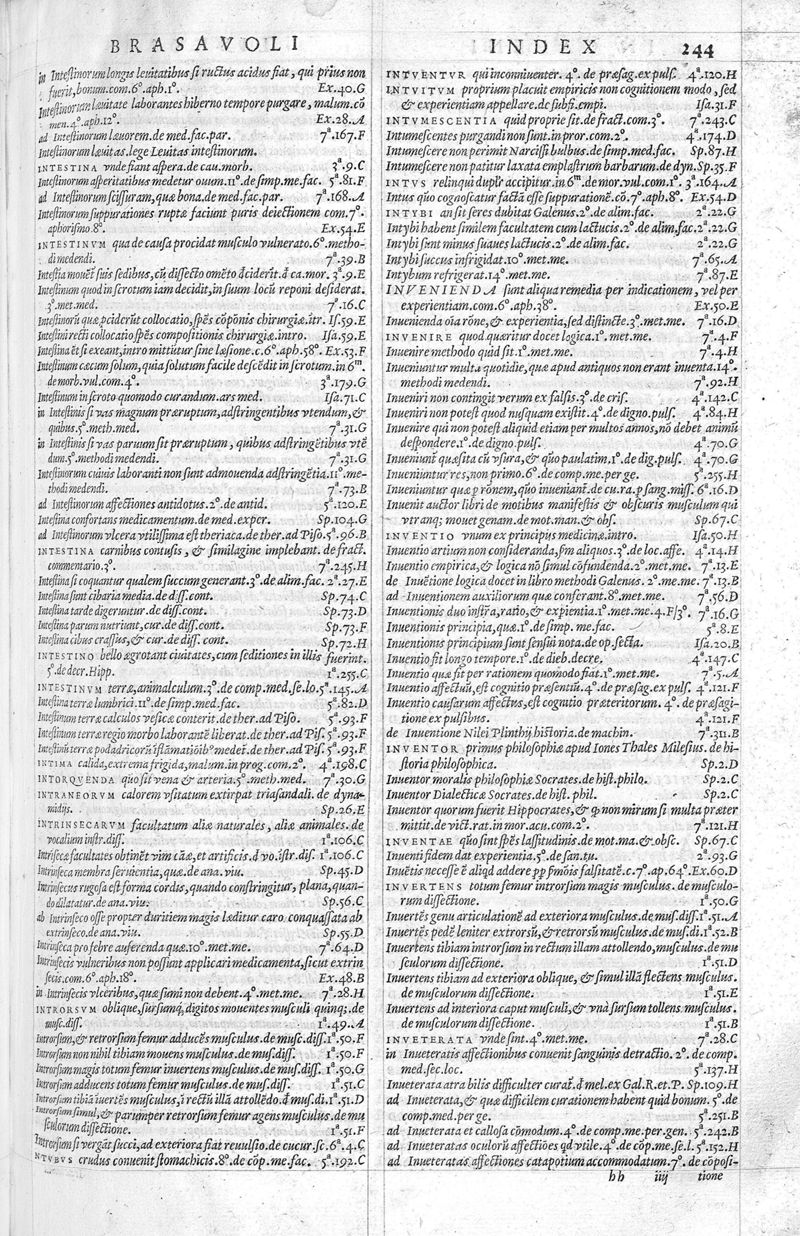 BRASAVOLI
in Intestinorum longis leuitatibus si ructus acidus fiat, qui prius non
fuerit, bonum. com. 6°. aph. 1°. Ex. 40. G
Intestinorum læuitate laborantes hiberno tempore purgare, malum. cō
men. 4°. aph. 12°. Ex. 28. A
ad Intestinorum læuorem. de med. fac. par. 7ª. 167. F
Intestinorum læuitas. lege Leuitas intestinorum.
INTESTINA vnde fiant aspera. de cau. morb. 3ª. 9. C
Intestinorum asperitatibus medetur ouum. 11°. de simp. me. fac. 5ª. 81. F
ad Intestinorum scissuram, quæ bona. de med. fac. par. 7ª. 168. A
Intestinorum suppurationes ruptæ faciunt puris deiectionem com. 7°.
aphorismo. 8°. Ex. 54. E
INTESTINVM qua de causa procidat musculo vulnerato. 6°. metho-
di medendi. 7ª. 39. B
Intestīa mouēt suis sedibus, cū dissecto omēto q̄ciderīt. q̄ ca. mor. 3ª. 9. E
Intestinum quod in scrotum iam decidit, in suum locū reponi desiderat.
3°. met. med. 7ª. 16. C
Intestinorū quæ ꝓciderūt collocatio, spēs cōpōnis chirurgiæ. ītr. Is. 59. E
Intestini recti collocatio, spēs compositionis chirurgiæ. intro. Isa. 59. E
Intestina etsi exeant, intro mittūtur sine læsione. c. 6°. aph. 58°. Ex. 53. F
Intestinum cæcum solum, quia solutum facile descēdit in scrotum. in 6ᵐ.
de morb. vul. com. 4°. 3ª. 179. G
Intestinum in scroto quomodo curandum. ars med. Isa. 71. C
in Intestinis si vas magnum præruptum, adstringentibus vtendum, &
quibus. 5°. meth. med. 7ª. 31. G
in Intestinis si vas paruum sit præruptum, quibus adstringētibus vtē
dum. 5°. methodi medendi. 7ª. 31. G
Intestinorum cuiuis laboranti non sunt admouenda adstringētia. 11°. me-
thodi medendi. 7ª. 73. B
ad Intestinorum affectiones antidotus. 2°. de antid. 5ª. 120. E
Intestina confortans medicamentum. de med. exper. Sp. 104. G
ad Intestinorum vlcera vtilissima est theriaca. de ther. ad Piso. 5ª. 96. B
INTESTINA carnibus contusis, & similagine implebant. de fract.
commentario. 3°. 7ª. 245. H
Intestina si coquantur qualem succum generant. 3°. de alim. fac. 2ª. 27. E
Intestina sunt cibaria media. de diss. cont. Sp. 74. C
Intestina tarde digeruntur. de diss. cont. Sp. 73. D
Intestina parum nutriunt, cur. de diss. cont. Sp. 73. F
Intestina cibus crassus, & cur. de diss. cont. Sp. 72. H
INTESTINO bello ægrotant ciuitates, cum seditiones in illis fuerint.
5°. de decr. Hipp. 1ª. 255. C
INTESTINVM terræ, animalculum. 3°. de comp. med. se. lo. 5ª. 145. A
Intestina terræ lumbrici. 11°. de simp. med. fac. 5ª. 82. D
Intestinum terræ calculos vesicæ conterit. de ther. ad Piso. 5ª. 93. F
Intestinum terræ regio morbo laborantē liberat. de ther. ad Pis. 5ª. 93. F
Intestinū terræ podadricorū īflāmatiōib⁹ medet̄. de ther. ad Pis. 5ª. 93. F
INTIMA calida, extrema frigida, malum. in prog. com. 2°. 4ª. 198. C
INTORQVENDA quo sit vena & arteria. 5°. meth. med. 7ª. 30. G
INTRANEORVM calorem vsitatum extirpat triasandali. de dyna-
midijs. Sp. 26. E
INTRINSECARVM facultatum aliæ naturales, aliæ animales. de
vocalium instr. diss. 1ª. 106. C
Intrīsecæ facultates obtinēt vim cāæ, et artificis. d̄ vo. īstr. dis. 1ª. 106. C
Intrinseca membra seruientia, quæ. de ana. viu. Sp. 45. D
Intrinsecus rugosa est forma cordis, quando constringitur, plana, quan-
do dilatatur. de ana. viu. Sp. 56. C
ab Intrinseco osse propter duritiem magis læditur caro conquassata ab
extrinseco. de ana. viu. Sp. 55. D
Intrinseca pro febre auferenda quæ. 10°. met. me. 7ª. 64. D
Intrinsecis vulneribus non possunt applicari medicamenta, sicut extrin
secis. com. 6°. aph. 18°. Ex. 48. B
in Intrinsecis vlceribus, quæ sumi non debent. 4°. met. me. 7ª. 28. H
INTRORSVM oblique, sursumq́, digitos mouentes musculi quinq; de
musc. diss. 1ª. 49. A
Introrsum, & retrorsum femur adducēs musculus. de musc. diss. 1ª. 50. F
Introrsum non nihil tibiam mouens musculus. de mus. diss. 1ª. 50. F
Introrsum magis totum femur inuertens musculus. de mus. diss. 1ª. 50. G
Introrsum adducens totum femur musculus. de mus. diss. 1ª. 51. C
Introrsum tibiā īuertēs musculus, ī rectū illā attollēdo. d̄ mus. di. 1ª. 51. D
Introrsum simul, & parumper retrorsum femur agens musculus. de mu
sculorum dissectione. 1ª. 51. F
Introrsum si vergāt succi, ad exteriora fiat reuulsio. de cucur. sc. 6ª. 4. C
NTVBVS crudus conuenit stomachicis. 8°. de cōp. me. fac. 5ª. 192. C
INDEX 244
INTVENTVR qui inconniuenter. 4°. de præsag. ex puls. 4ª. 120. H
INTVITVM proprium placuit empiricis non cognitionem modo, sed
& experientiam appellare. de subfi. empi. Isa. 31. F
INTVMESCENTIA quid proprie sit. de fract. com. 3°. 7ª. 243. C
Intumescentes purgandi non sunt. in pror. com. 2°. 4ª. 174. D
Intumescere non perimit Narcissi bulbus. de simp. med. fac. Sp. 87. H
Intumescere non patitur laxata emplastrum barbarum. de dyn. Sp. 35. F
INTVS relinqui dupl̄r accipitur. in 6ᵐ. de mor. vul. com. 1°. 3ª. 164. A
Intus quo cognoscatur factā esse suppurationē. cō. 7°. aph. 8°. Ex. 54. D
INTYBI an sit seres dubitat Galenus. 2°. de alim. fac. 2ª. 22. G
Intybi habent similem facultatem cum lactucis. 2°. de alim. fac. 2ª. 22. G
Intybi sunt minus suaues lactucis. 2°. de alim. fac. 2ª. 22. G
Intybi succus infrigidat. 10°. met. me. 7ª. 65. A
Intybum refrigerat. 14°. met. me. 7ª. 87. E
INVENIENDA sunt aliqua remedia per indicationem, vel per
experientiam. com. 6°. aph. 38°. Ex. 50. E
Inuenienda oīa rōne, & experientia, sed distincte. 3°. met. me. 7ª. 16. D
INVENIRE quod quæritur docet logica. 1°. met. me. 7ª. 4. F
Inuenire methodo quid sit. 1°. met. me. 7ª. 4. H
Inueniuntur multa quotidie, quæ apud antiquos non erant inuenta. 14°.
methodi medendi. 7ª. 92. H
Inueniri non contingit verum ex falsis. 3°. de cris. 4ª. 142. C
Inueniri non potest quod nusquam existit. 4°. de digno. puls. 4ª. 84. H
Inuenire qui non potest aliquid etiam per multos annos, nō debet animū
despondere. 1°. de digno. puls. 4ª. 70. G
Inueniunt̄ quæsita cū vsura, & quo paulatim. 1°. de dig. puls. 4ª. 70. G
Inueniuntur res, non primo. 6°. de comp. me. per ge. 5ª. 255. H
Inueniuntur quæ ꝑ rōnem, quo inueniant̄. de cu. ra. ꝑ sang. miss. 6ª. 16. D
Inuenit auctor libri de motibus manifestis & obscuris musculum qui
vtranq; mouet genam. de mot. man. & obs. Sp. 67. C
INVENTIO vnum ex principijs medicinæ. intro. Isa. 50. H
Inuentio artium non consideranda, sm̄ aliquos. 3°. de loc. affe. 4ª. 14. H
Inuentio empirica, & logica nō simul cōfundenda. 2°. met. me. 7ª. 13. E
de Inuētione logica docet in libro methodi Galenus. 2°. me. me. 7ª. 13. B
ad Inuentionem auxiliorum quæ conferant. 8°. met. me. 7ª. 56. D
Inuentionis duo instr̄a, ratio, & expientia. 1°. met. me. 4. F/3°. 7ª. 16. G
Inuentionis principia, quæ. 1°. de simp. me. fac. 5ª. 8. E
Inuentionis principium sunt sensui nota. de op. secta. Isa. 20. B
Inuentio fit longo tempore. 1°. de dieb. decre. 4ª. 147. C
Inuentio quæ fit per rationem quomodo fiat. 1°. met. me. 7ª. 5. A
Inuentio affectuū, est cognitio præsentiū. 4°. de præsag. ex puls. 4ª. 121. F
Inuentio causarum affectus, est cognitio præteritorum. 4°. de præsagi-
tione ex pulsibus. 4ª. 121. F
de Inuentione Nilei Plinthij historia. de machin. 7ª. 311. B
INVENTOR primus philosophiæ apud Iones Thales Milesius. de hi-
storia philosophica. Sp. 2. D
Inuentor moralis philosophiæ Socrates. de hist. philo. Sp. 2. C
Inuentor Dialecticæ Socrates. de hist. phil. Sp. 2. C
Inuentor quorum fuerit Hippocrates, & ꝙ non mirum si multa præter
mittit. de vict. rat. in mor. acu. com. 2°. 7ª. 121. H
INVENTAE quo sint spēs lassitudinis. de mot. ma. & obsc. Sp. 67. C
Inuenti fidem dat experientia. 5°. de san. tu. 2ª. 93. G
Inuētis necesse ē aliqd addere ꝓp sm̄ois falsitatē. c. 7°. ap. 64°. Ex. 60. D
INVERTENS totum femur introrsum magis musculus. de musculo-
rum dissectione. 1ª. 50. G
Inuertēs genu articulationē ad exteriora musculus. de mus. diss. 1ª. 51. A
Inuertēs pedē leniter extrorsū, & retrorsū musculus. de mus. di. 1ª. 52. B
Inuertens tibiam introrsum in rectum illam attollendo, musculus. de mu
sculorum dissectione. 1ª. 51. D
Inuertens tibiam ad exteriora oblique, & simul illā flectens musculus.
de musculorum dissectione. 1ª. 51. E
Inuertens ad interiora caput musculi, & vnà sursum tollens musculus.
de musculorum dissectione. 1ª. 51. B
INVETERATA vnde sint. 4°. met. me. 7ª. 28. C
in Inueteratis affectionibus conuenit sanguinis detractio. 2°. de comp.
med. sec. loc. 5ª. 137. H
Inueterata atra bilis difficulter curat̄. q̄ mel. ex Gal. R. et. P. Sp. 109. H
ad Inueterata, & quæ difficilem curationem habent quid bonum. 5°. de
comp. med. per ge. 5ª. 251. B
ad Inueterata et callosa cōmodum. 4°. de comp. me. per gen. 5ª. 242. B
ad Inueteratas oculorū affectiōes qd vtile. 4°. de cōp. me. se. l. 5ª. 152. H
ad Inueteratas affectiones catapotium accommodatum. 7°. de cōposi-
hh iiij tione